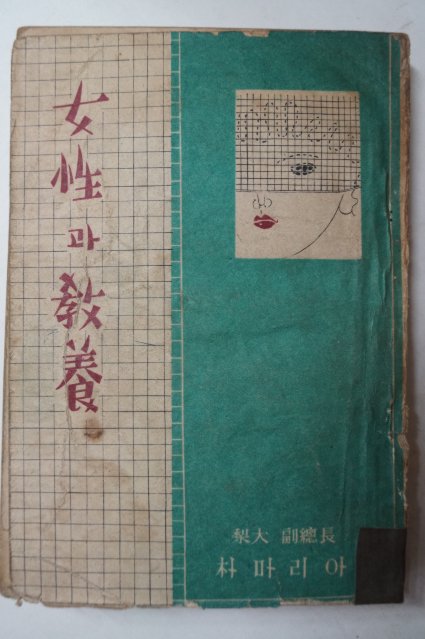 女性과敎養
梨大 副總長
朴마리아